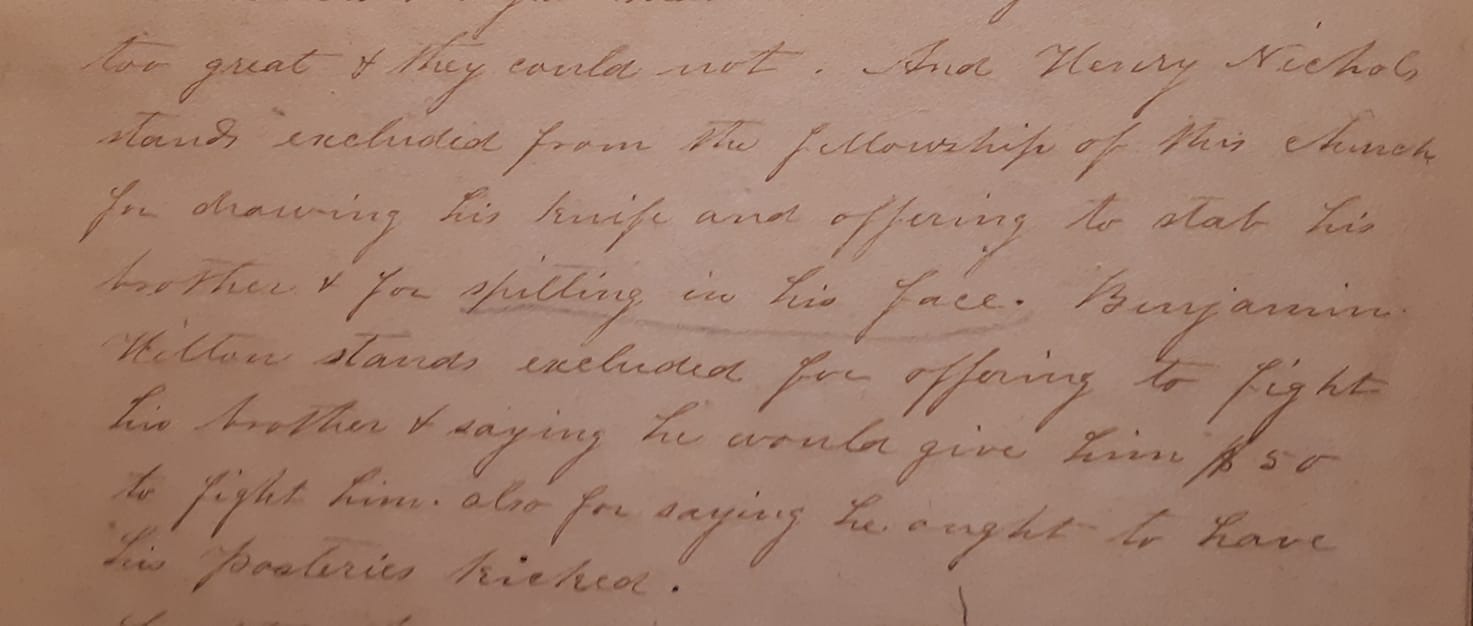 too great & they could not. And Henry Nichols
stands excluded from the fellowship of this church
for drawing his knife and offering to stab his
brother & for spitting in his face. Benjamin
Hilton stands excluded for offering to fight
his brother & saying he would give him $50
to fight him. also for saying he ought to have
his posteries kicked.